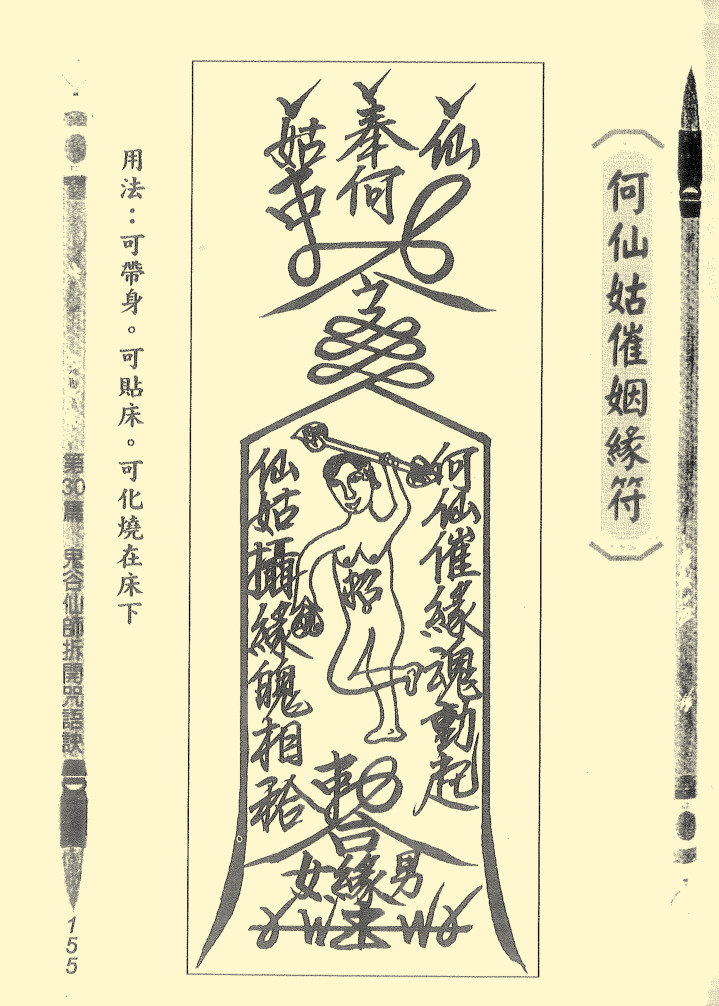 何仙姑催姻緣符
仙
奉何
姑
何仙催緣魂動起
招
仙姑攝緣魄相
合
男
緣
女
用法：可帶身。可貼床。可化燒在床下
第30篇 鬼谷仙師拆開咒語訣
155